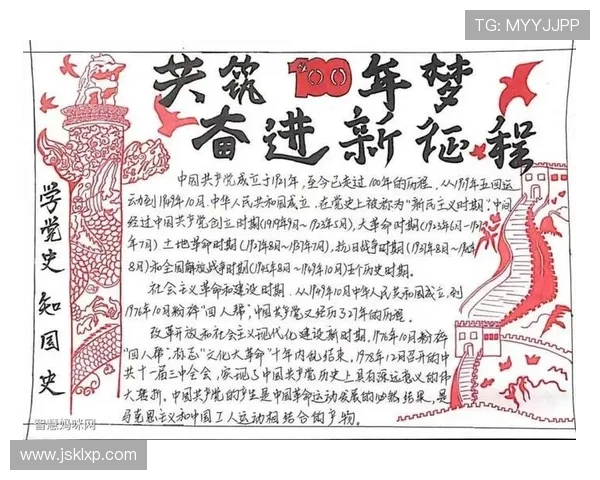 TG: MYYJJPP
共筑100年梦
奋进新征程
学党史 知国史
中国共产党成立于1921年，至今已走过100年的历程。从1919年五四运
动到1949年10月，中华人民共和国成立，在党史上被称为"新民主主义时期"，中间
经过中国共产党创立时期(1919年9月～1923年5月)，大革命时期(1923年6月～1927
年7月) 土地革命时期(1927年8月～1937年7月)，抗日战争时期(1937年8月～1945年
8月)和全国解放战争时期(1945年8月～1949年10月)五个历史时期。
社会主义革命和建设时期．从1949年10月中华人民共和国成立，到
1976年10月粉碎"四人帮"，中国共产党又经历了27年的历程。
改革开放和社会主义现代化建设新时期．1976年10月粉碎
"四人帮"，标志"文化大革命"十年内乱结束，1978年12月召开的中
共十一届三中全会，实现了中国共产党历史上具有深远意义的伟
大转折。中国共产党的产生是中国革命运动发展的必然结果，是
马克思主义和中国工人运动相结合的产物。
智慧妈咪网
www.jsklxp.com